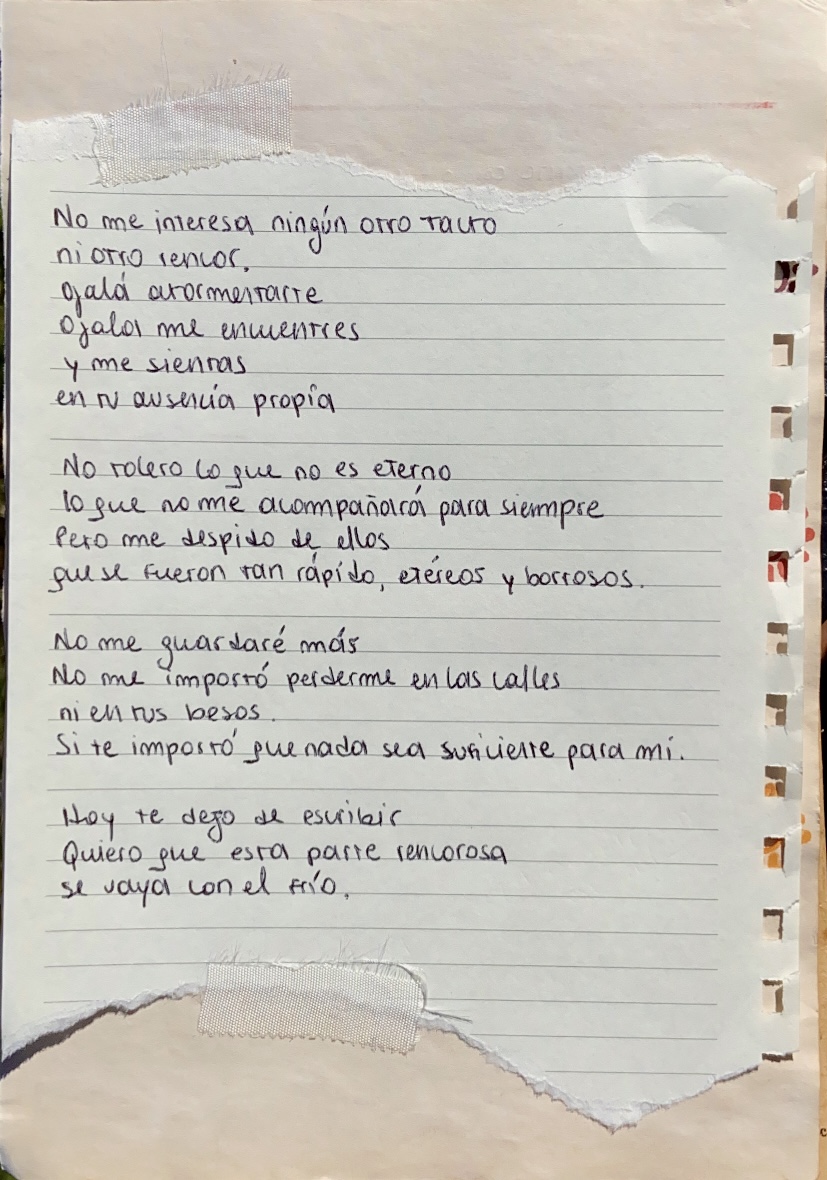 No me interesa ningún otro tacto
ni otro rencor,
ojalá atormentarte
Ojalá me encuentres
y me sientas
en tu ausencia propia
No tolero lo que no es eterno
lo que no me acompañará para siempre
Pero me despido de ellos
que se fueron tan rápido, etéreos y borrosos.
No me guardaré más
No me importó perderme en las calles
ni en tus besos.
Si te importó que nada sea suficiente para mí.
Hoy te dejo de escribir
Quiero que esta parte rencorosa
se vaya con el frío.